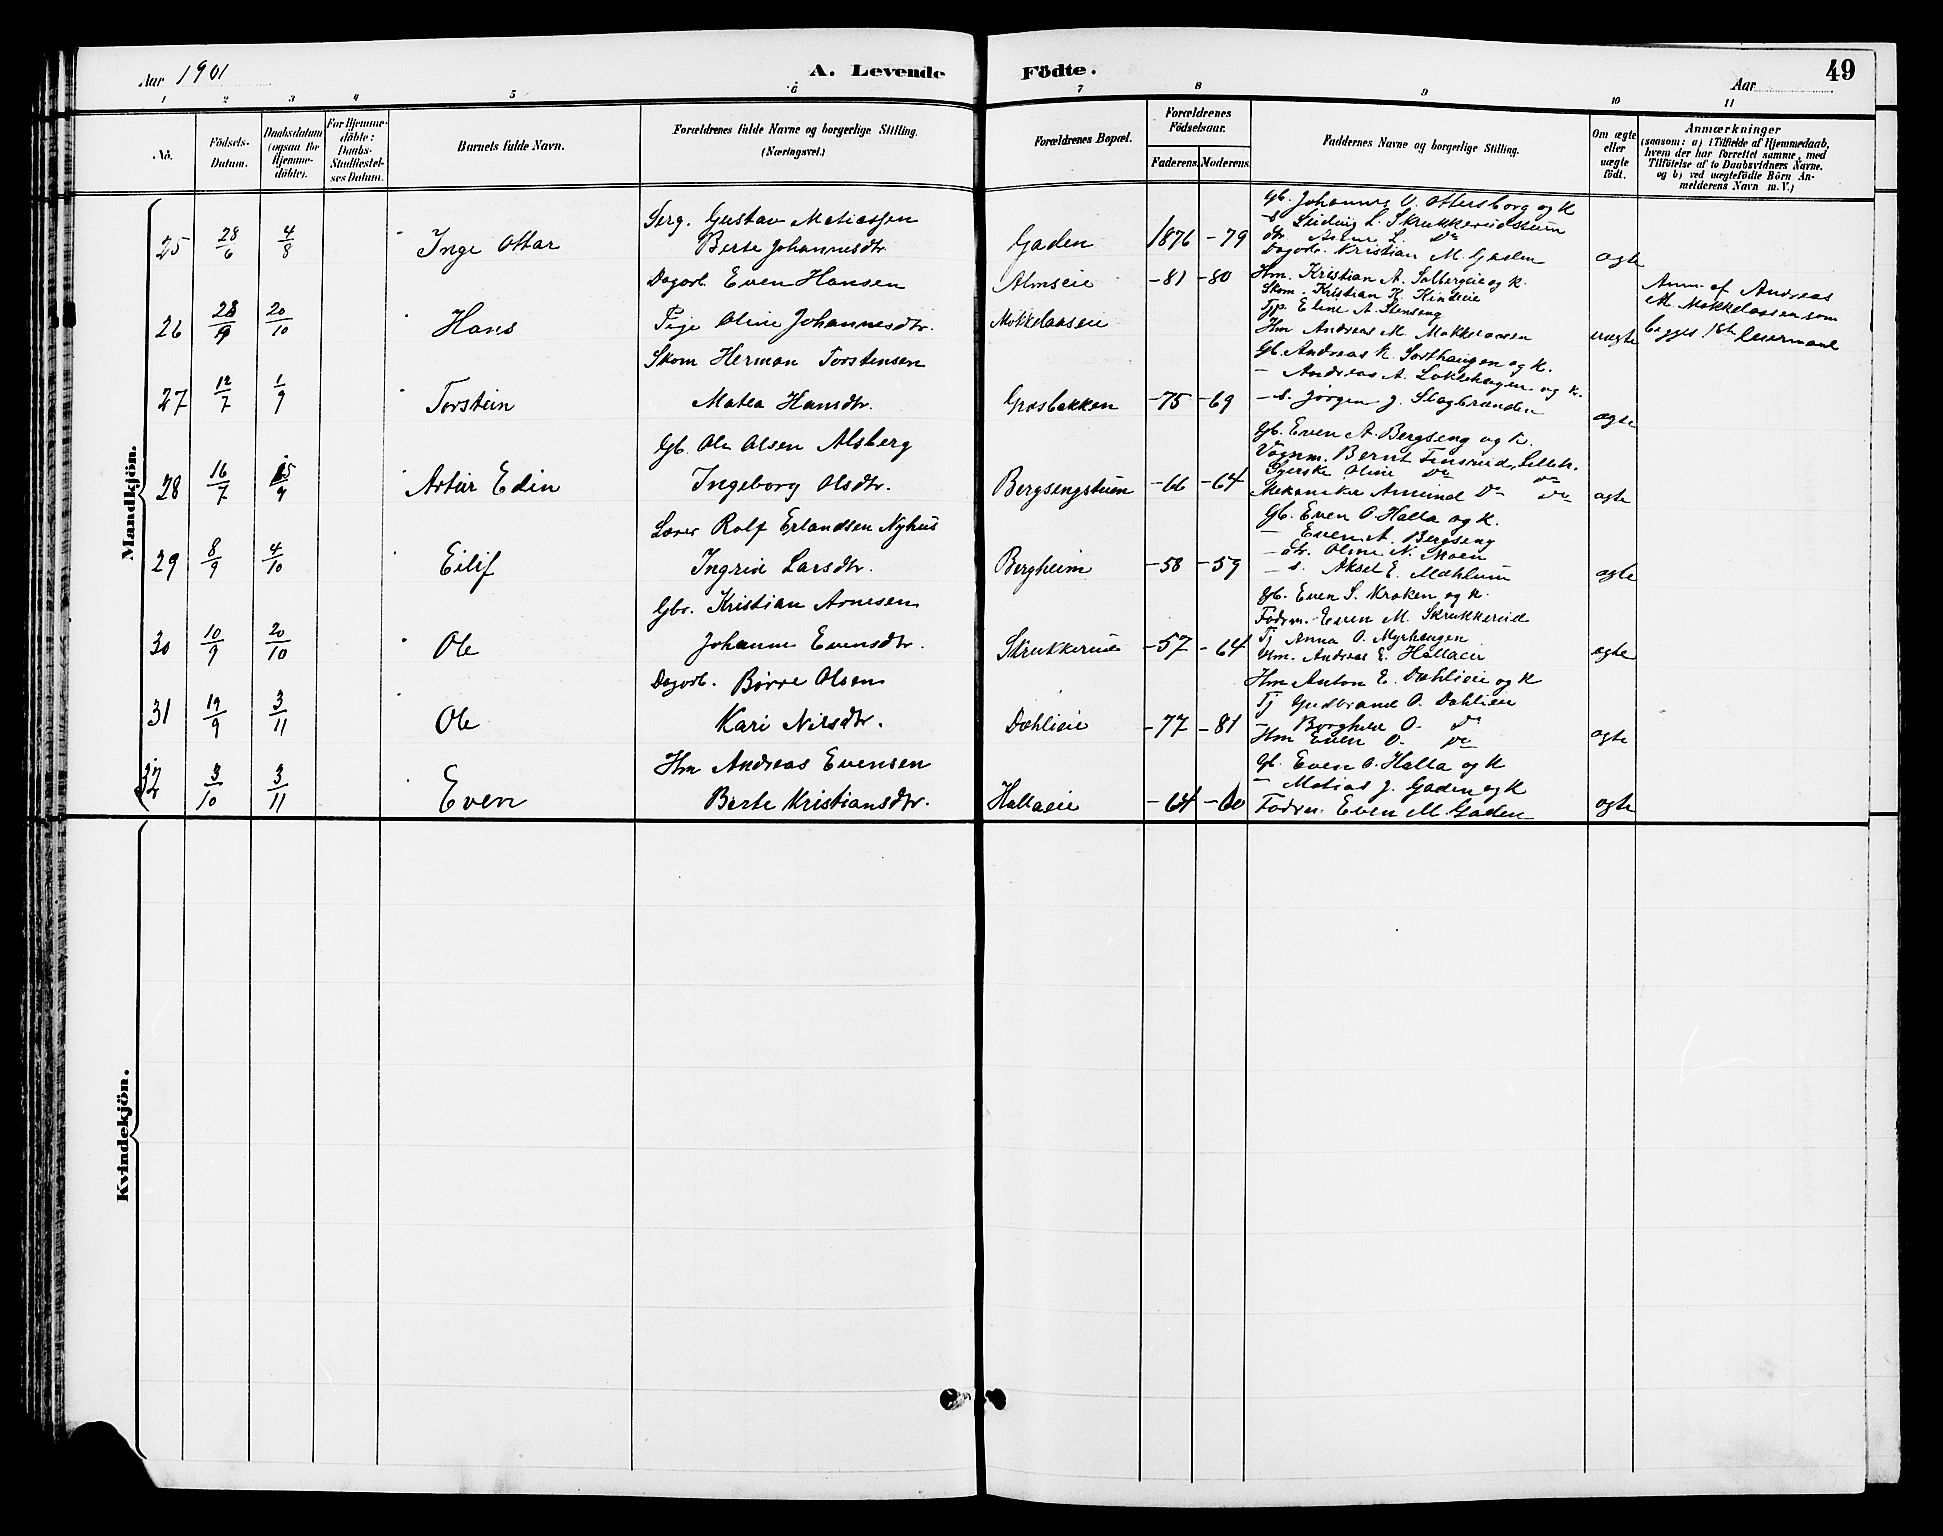 Aar 1901
A. Levende Födte.
Aar
49
1 2 3 4 5 6 7 8 9 10 11
No.
Födsels-Datum.
Daabsdatum (ogsaa for Hjemme-döbte).
For Hjemme-döbte: Daabs-Stadfæstel-ses Datum.
Barnets fulde Navn.
Forældrenes fulde Navne og borgerlige Stilling. (Næringsvei.)
Forældrenes Bopæl.
Forældrenes Födselsaar.
Faderens. Moderens.
Faddernes Navne og borgerlige Stilling.
Om ægte eller uægte födt.
Anmærkninger
(saasom: a) i Tilfælde af Hjemmedaab,
hvem der har forrettet samme, med
Tilföielse af to Daabsvidners Navne.
og b) ved uægtefödte Börn An-
melderens Navn m. V.)
Mandkjön.
25 28/6 4/8 Inge Ottar
Serg. Gustav Matiassen
Berte Johannesdtr
Gaden 1876 -79
Gb. Johannes O. Ottersborg og K
s. Ludvig L. Skrukkerudstuen
dtr Anne L. Do
Dagarb. Kristian M. Gaden
ægte
26 28/9 20/10 Hans
Dagarb. Even Hansen
Pige Oline Johannesdtr.
Almseie
Mokkelaaseie
-81 -80
Hm. Kristian A. Solbergeie og K.
Skom. Kristian K. Kindeie
Tjp. Eline A. Stenseng
Hm Andreas M. Mokkelaasen
uægte
Anm. af Andreas
M. Mokkelaasen som
begges 1ste Leiermaal
27 12/7 1/9 Torstein
Skom Herman Torstensen
Matea Hansdtr.
Græsbakken -75 -69
Gb. Andreas K. Sorthaugen og K.
- Andreas A. Løkkehagen og K.
- s. Jørgen J. Slagbrenden
ægte
28 16/7 15/9 Artur Edin
Gb. Ole Olsen Alsberg
Ingeborg Olsdtr.
Bergsengstuen -66 -64
Gb. Even A. Bergseng og K.
Vognm. Bernt Finsrud, Lilleh.
Syerske Oline Do Do
Mekaniker Amund Do Do
ægte
29 8/9 4/10 Eilif
Lærer Rolf Erlandsen Nyhus
Ingrid Larsdtr.
Bergheim -58 -59
Gb. Even O. Halla og K.
- Even A. Bergseng
- dtr. Oline N. Moen
- s. Aksel E. Mæhlum
ægte
30 10/9 20/10 Ole
Gbr. Kristian Arnesen
Johanne Evensdtr.
Skrukkerud -57 -64
Gb. Even S. Kroken og K.
Føderm. Even M. Skrukkerud
Tj Anna O. Myrhaugen
Hm. Andreas E. Hallaeie
ægte
31 19/9 3/11 Ole
Dagarb. Børre Olsen
Kari Nilsdtr.
Dahlieie -77 -81
Hm Anton E. Dahlieie og K
Tj Gudbrand O. Dahlien
- Borghild O. Do
Hm Even O. Do
ægte
32 3/10 3/11 Even
Hm Andreas Evensen
Berte Kristiansdtr.
Hallaeie -64 -60
Gb. Even O. Halla og K
- Matias J. Gaden og K
Føderm. Even M. Gaden
ægte
Kvindekjön.